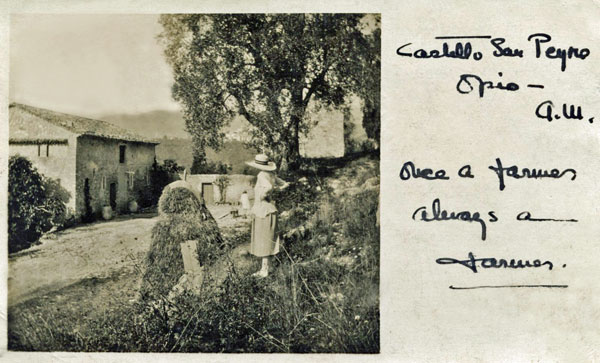 Castello San Peyre
Opio —
A.M.
Once a farmer
always a
farmer.